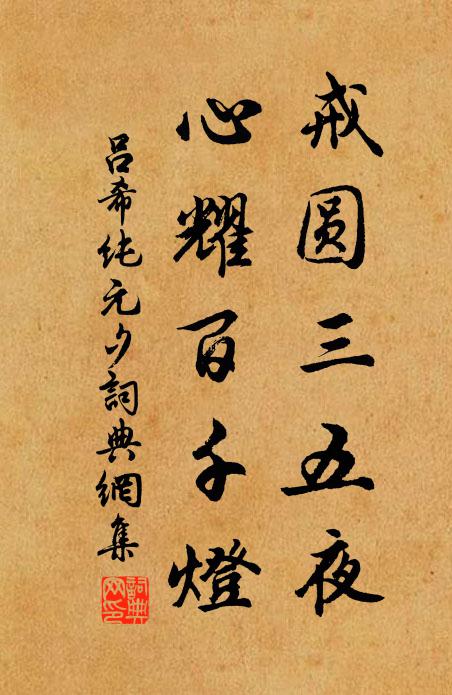 戒圆三五夜
心耀百千燈
吕希纯元夕詞典網集
詞典網印